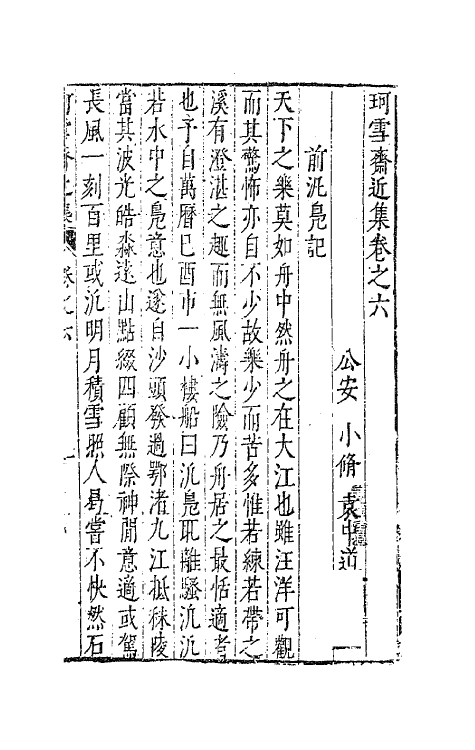 珂雪齋近集卷之六
公安 小脩 袁中道
前汎鳧記
天下之樂莫如舟中然舟之在大江也雖汪洋可觀
而其驚怖亦自不少故樂少而苦多惟若練若帶之
溪有澄湛之趣而無風濤之險乃舟居之最恬適者
也予自萬曆巳酉市一小樓船曰汎鳧取離騷汎汎
若水中之鳧意也遂自沙頭發過鄂渚九江抵秣陵
當其波光皓淼遠山點綴四顧無際神閒意適或駕
長風一刻百里或汎明月積雪照人曷嘗不快然石
珂雪齋近集 卷之六 一